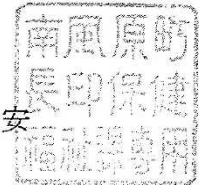 南風原町
長印保健
安
福祉課専用